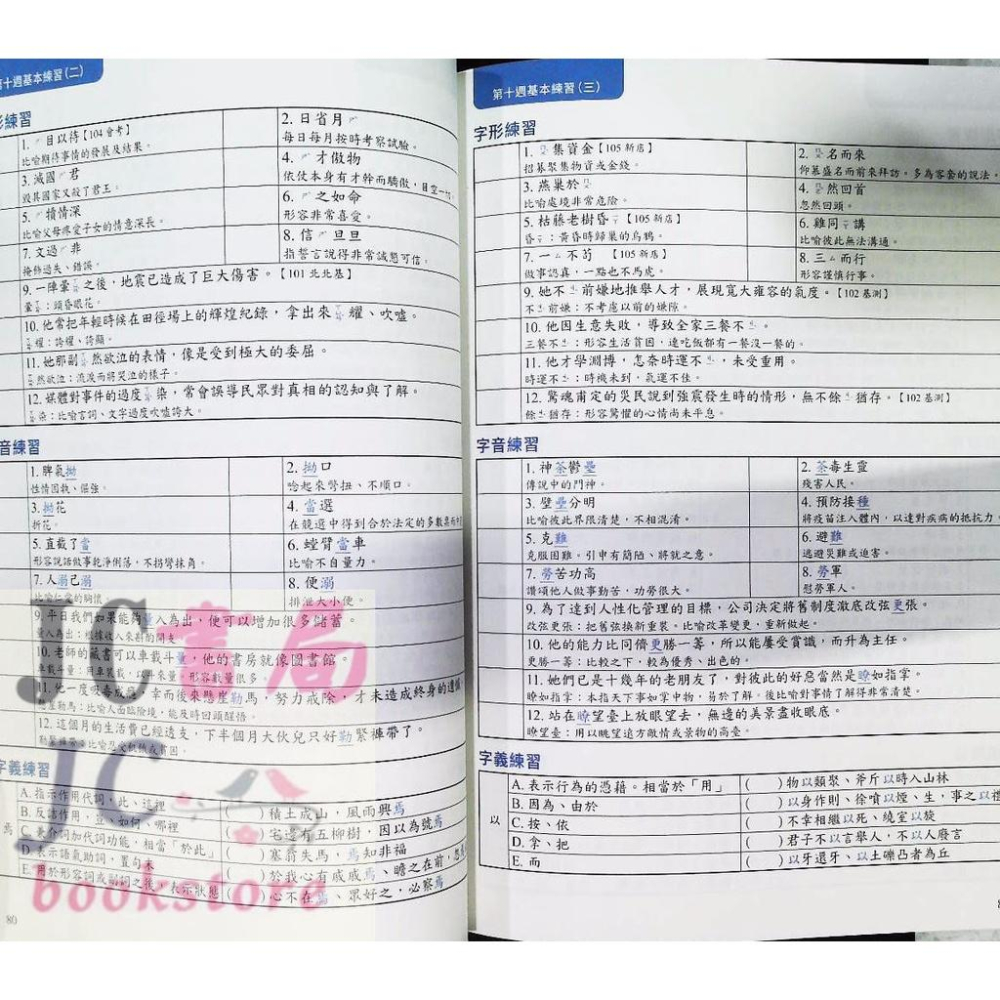 第十週基本練習(二)
形練習
1. 目以待【104會考】
比喻期待事情的發展及結果。
2. 日省月
每日每月按時考察試驗。
3. 滅國 君
毀其國家又殺了君王。
4. 才傲物
依仗本身有才幹而驕傲,目空一
5. 犢情深
比喻父母疼愛子女的情意深長。
6. 之如命
形容非常喜愛。
7. 文過 非
掩飾過失、錯誤。
8. 信 旦旦
指誓言說得非常誠懇可信。
9. 一陣暈 之後,地震已造成了巨大傷害。【101北北基】
暈 :頭昏眼花。
10. 他常把年輕時候在田徑場上的輝煌紀錄,拿出來 耀、吹噓。
耀:誇耀、誇顯。
11. 她那副 然欲泣的表情,像是受到極大的委屈。
然欲泣:流淚而將哭泣的樣子。
12. 媒體對事件的過度 染,常會誤導民眾對真相的認知與了解。
染:比喻言詞、文字過度吹噓誇大。
音練習
1. 脾氣拗
性情固執、倔強。
2. 拗口
唸起來彆扭、不順口。
3. 拗花
折花。
4. 當選
在競選中得到合於法定的多數票而
5. 直截了當
形容說話做事乾淨俐落,不拐彎抹角。
6. 螳臂當車
比喻不自量力。
7. 人溺己溺
比喻仁慈的胸懷。
8. 便溺
排泄大小便。
9. 平日我們如果能夠量入為出,便可以增加很多儲蓄。
量入為出:根據收入來斟酌開支
10. 老師的藏書可以車載斗量,他的書房就像圖書館。
車載斗量:用車裝載,以斗來量。形容數量很多。
11. 他一度吸毒成癮,幸而後來懸崖勒馬,努力戒除,才未造成終身的遺憾
懸崖勒馬:比喻人面臨險境,能及時回頭醒悟。
12. 這個月的生活費已經透支,下半個月大伙兒只好勒緊褲帶了。
字義練習
焉
A. 指示作用代詞,此、這裡
( )積土成山,風雨興焉
B. 反詰作用,豈、如何、哪裡
( )宅邊有五柳樹,因以為號焉
C. 兼介詞加代詞功能,相當「於此」
( )塞翁失馬,焉知非福
D. 表示語氣助詞,置句末
( )於我心有戚戚焉、瞻之在前,忽焉
E. 用於形容詞或副詞之後,表示狀態
( )心不在焉、眾好之,必察焉
80
JC書局
JC
bookstore
第十週基本練習(三)
字形練習
1. 集資金【105新店】
招募聚集物資或金錢。
2. 名而來
仰慕盛名而前來拜訪。多為客套的說法。
3. 燕巢於
比喻處境非常危險。
4. 然回首
忽然回頭。
5. 枯藤老樹昏 【105新店】
昏 :黃昏時歸巢的烏鴉。
6. 雞同 講
比喻彼此無法溝通。
7. 一 不苟 【105新店】
做事認真,一點也不馬虎。
8. 三 而行
形容謹慎行事。
9. 她不 前嫌地推舉人才,展現寬大雍容的氣度。【102基測】
不 前嫌:不考慮以前的嫌隙。
10. 他因生意失敗,導致全家三餐不 。
三餐不 :形容生活貧困,連吃飯都有一餐沒一餐的。
11. 他才學淵博,怎奈時運不 ,未受重用。
時運不 :時機未到,氣運不佳。
12. 驚魂甫定的災民說到強震發生時的情形,無不餘 猶存。【102基測】
餘 猶存:形容驚懼的心情尚未平息。
字音練習
1. 神荼鬱壘
傳說中的門神。
2. 荼毒生靈
殘害人民。
3. 壁壘分明
比喻彼此界限清楚,不相混淆。
4. 預防接種
將疫苗注入體內,以達對疾病的抵抗力
5. 克難
克服困難。引申有簡陋、將就之意。
6. 避難
逃避災難或迫害。
7. 勞苦功高
讚頌他人做事勤苦,功勞很大。
8. 勞軍
慰勞軍人。
9. 為了達到人性化管理的目標,公司決定將舊制度澈底改弦更張。
改弦更張:把舊弦換新重裝。比喻改革變更、重新做起。
10. 他的能力比同儕更勝一籌,所以能屢受賞識,而升為主任。
更勝一籌:比較之下,較為優秀、出色的。
11. 她們已是十幾年的老朋友了,對彼此的好惡當然是瞭如指掌。
瞭如指掌:本指天下事如掌中物,易於了解。後比喻對事情了解得非常清楚。
12. 站在瞭望臺上放眼望去,無邊的美景盡收眼底。
瞭望臺:用以眺望遠方敵情或景物的高臺。
字義練習
以
A. 表示行為的憑藉。相當於「用」
( )物以類聚、斧斤以時入山林
B. 因為、由於
( )以身作則、徐噴以煙、生,事之以禮
C. 按、依
( )不幸相繼以死、繞室以旋
D. 拿、把
( )君子不以言舉人,不以人廢言
E. 而
( )以牙還牙、以土礫凸者為丘